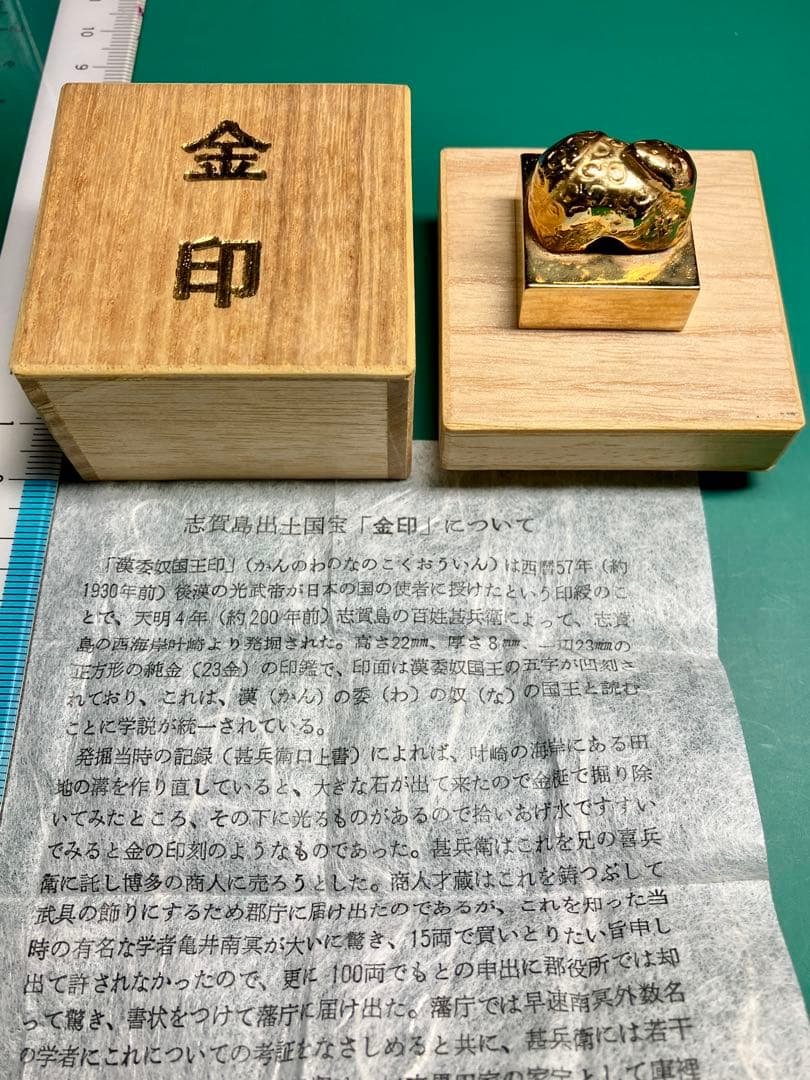 金
印
10
9
1
志賀島出土国宝「金印」について
「漢委奴国王印」(かんのわのなのこくおういん)は西暦57年(約
1930年前)後漢の光武帝が日本の国の使者に授けたという印綬のこ
とで、天明4年(約200年前)志賀島の百姓甚兵衛によって、志賀
島の西海岸叶崎より発掘された。高さ22㎜、厚さ8㎜、一辺23㎜の
正方形の純金(23金)の印鑑で、印面は漢委奴国王の五字が凹刻さ
れており、これは、漢(かん)の委(わ)の奴(な)の国王と読む
ことに学説が統一されている。
発掘当時の記録(甚兵衛口上書)によれば、叶崎の海岸にある田
地の溝を作り直していると、大きな石が出て来たので金梃で掘り除
いてみたところ、その下に光るものがあるので拾いあげ水ですすい
でみると金の印刻のようなものであった。甚兵衛はこれを兄の喜兵
衛に託し博多の商人に売ろうとした。商人才蔵はこれを鋳つぶして
武具の飾りにするため郡庁に届け出たのであるが、これを知った当
時の有名な学者亀井南冥が大いに驚き、15両で買いとりたい旨申し
出て許されなかったので、更に100両でもとの申出に郡役所では却
って驚き、書状をつけて藩庁に届け出た。藩庁では早速南冥外数名
の学者にこれについての考証をなさしめると共に、甚兵衛には若干
家の家宝として庫裡